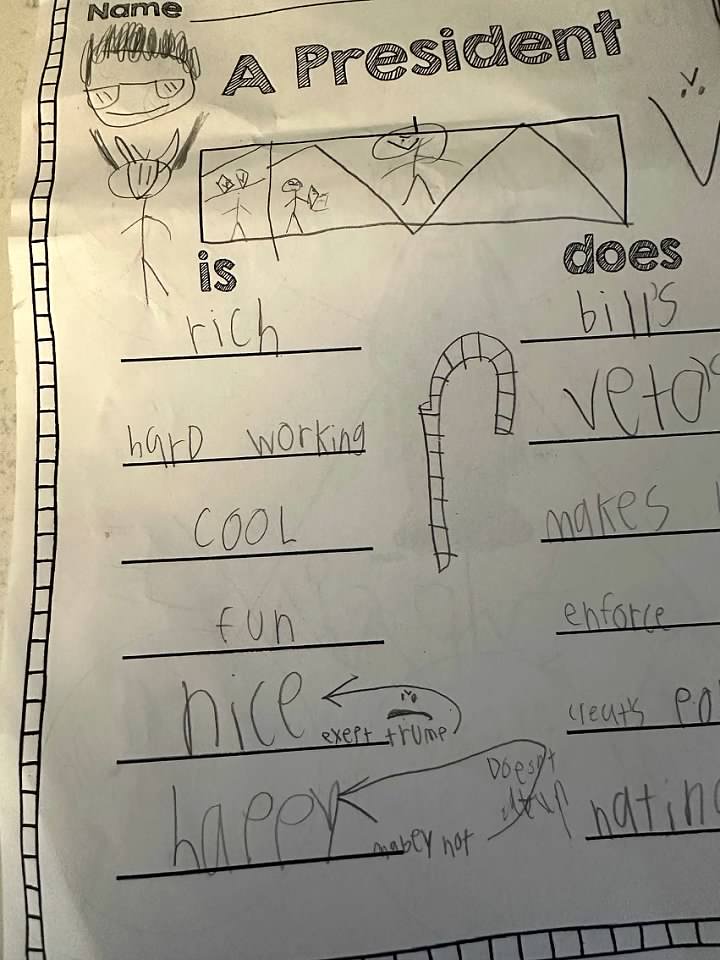 Name
A President
is
rich
hard working
cool
fun
nice
exept trump
happy
mabey not
does
bill's
veto's
makes
enforce
creat's
Doesnt